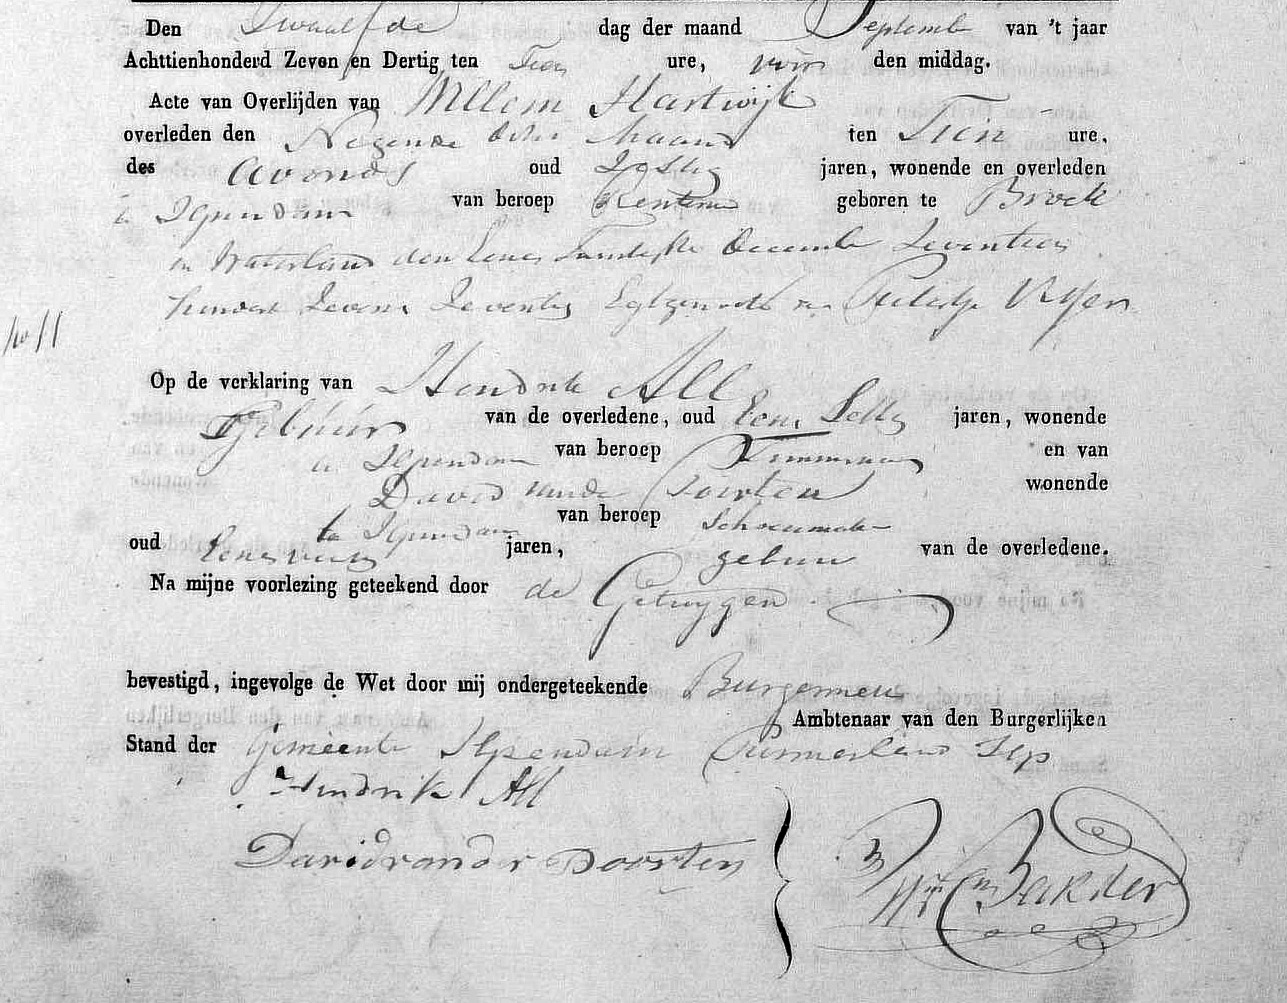 Den Twaalfde dag der maand September van 't jaar
Achttienhonderd Zeven en Dertig ten Tien ure, voor den middag.
Acte van Overlijden van Willem Hartwijk
overleden den Negende dezer Maand ten Tien ure.
des avonds oud Zestig jaren, wonende en overleden
te Ilpendam van beroep Rentenier geboren te Broek
in Waterland den Eenen Twintigste December Zeventien
hondert Zeven Zeventig Egtgenoot van
Op de verklaring van Hendrik All
Gebuur van de overledene, oud Een Sestig jaren, wonende
te Ilpendam van beroep Timmerman en van
David vande Poorten wonende
te Ilpendam van beroep Schoenmaker
oud jaren, gebuur van de overledene.
Na mijne voorlezing geteekend door de Getuygen
bevestigd, ingevolge de Wet door mij ondergeteekende Burgermeester
Ambtenaar van den Burgerlijken
Stand der Gemeente Ilpendam Purmerland Ilp
Hendrik All
David vander Poorten
Bakker